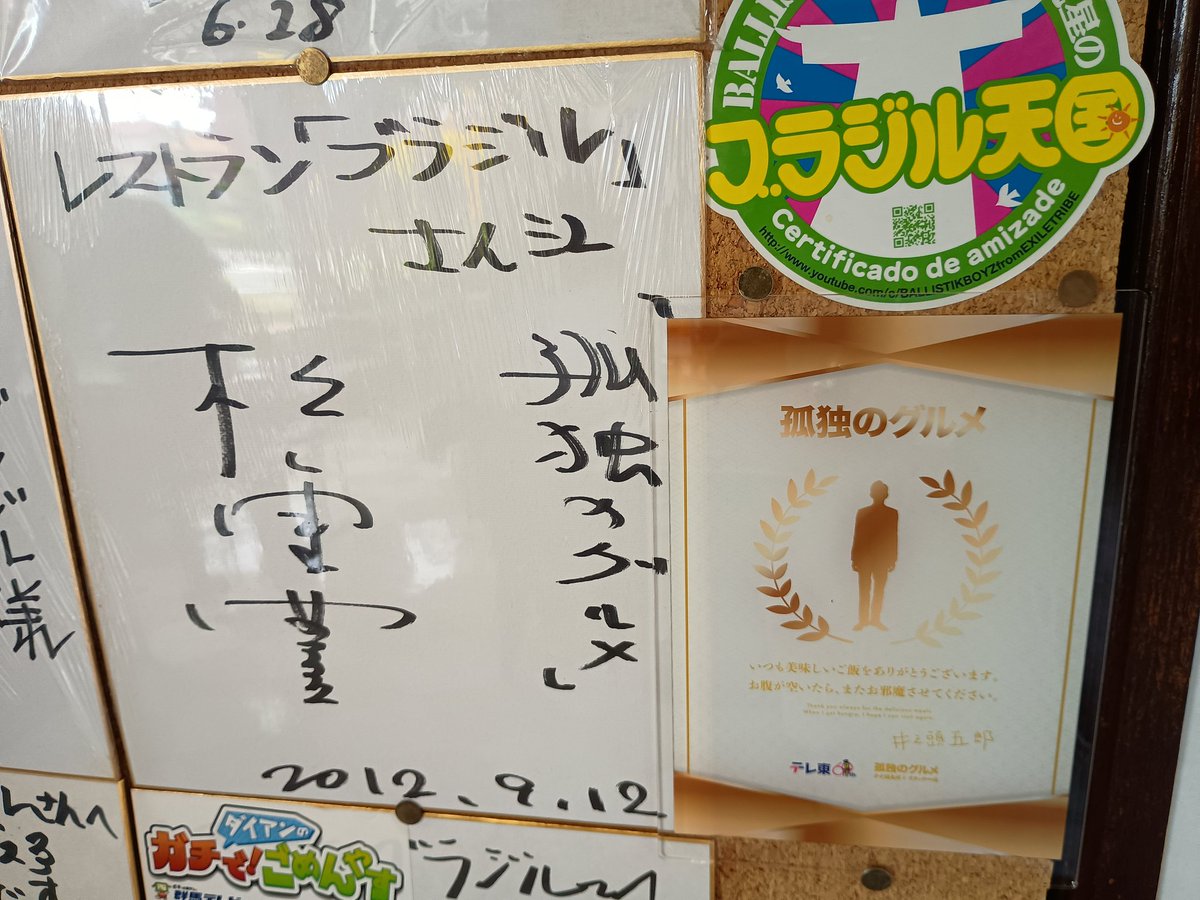 6.28
レストラン「ブラジル」
さん江
「孤独のグルメ」
松重豊
2012.9.12
BALLIS
星の
ブラジル天国
certificado de amizade
http://www.youtube.com/c/BALLISTIKBOYZfromEXILETRIBE
孤独のグルメ
いつも美味しいご飯をありがとうございます。
お腹が空いたら、またお邪魔させてください。
Thank you always for the delicious meals.
When I get hungry, I hope I can visit again.
井之頭五郎
テレ東
孤独のグルメ
さんへ
ダイアンの
ガチで!ごめんやす
群馬テレビ
ブラジル